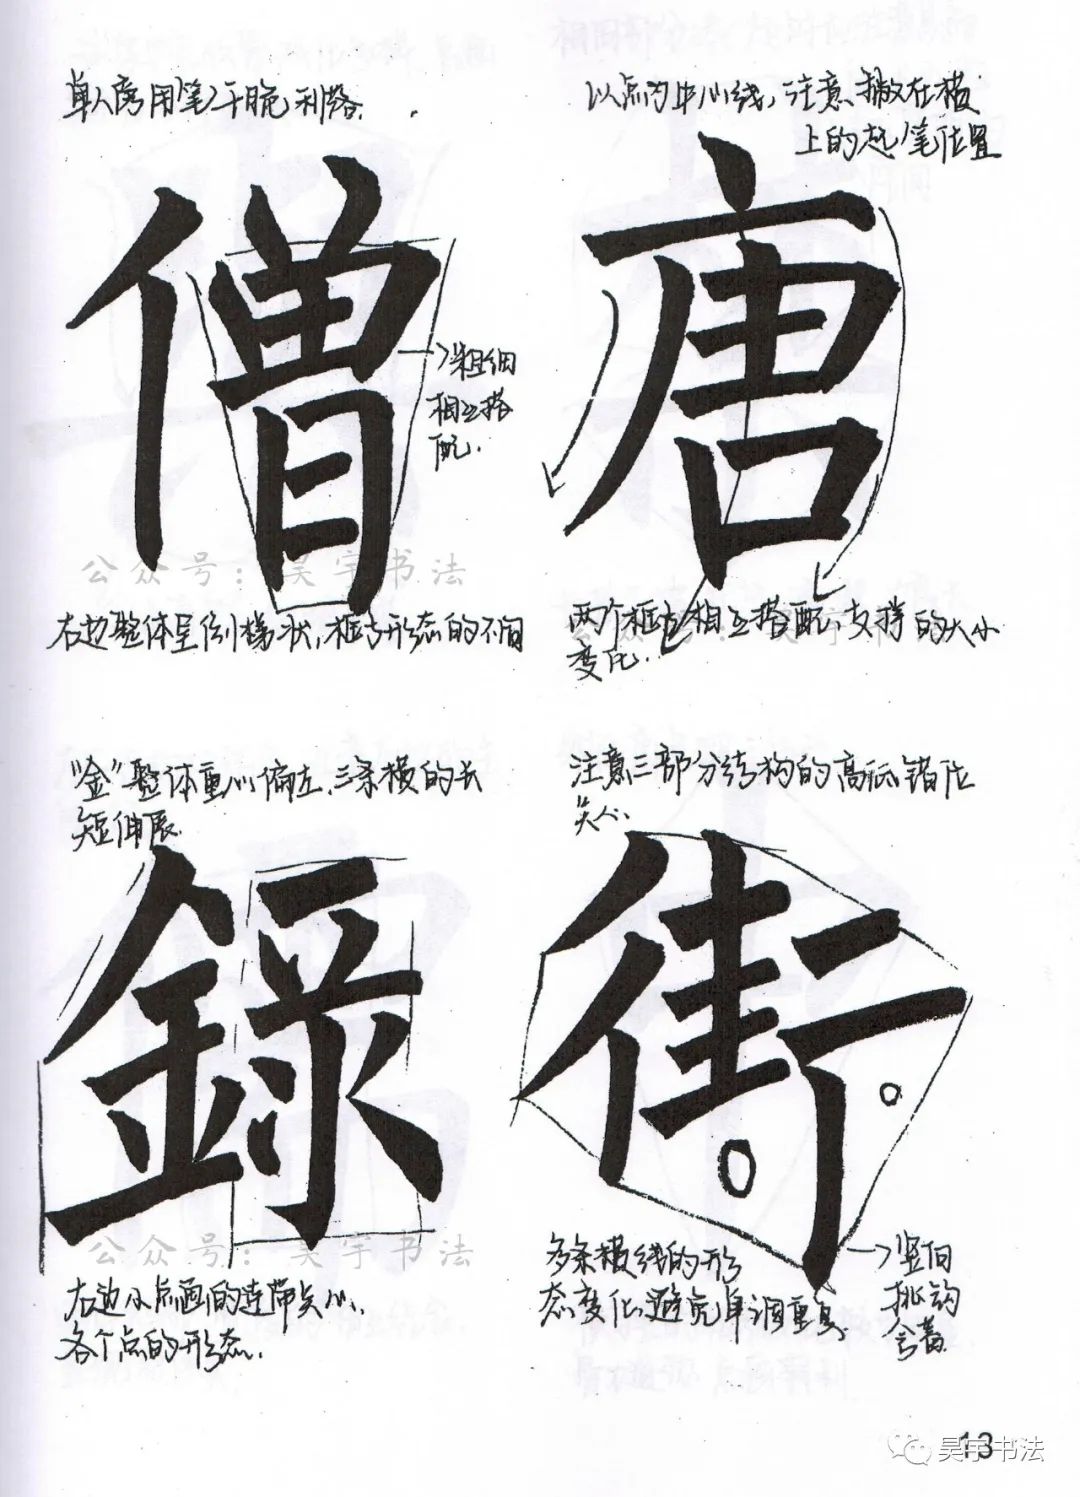 单人旁用笔干脆利落.
僧
→粗细
相互搭
配.
右边整体呈倒梯状,框与形态的不同
以点为中心线,注意撇在横
上的起笔位置
唐
两个框与相互搭配,支撑的大小
变化.
"金"整体重心偏左,三条横的长
短伸展
録
右边小点画的连带关心.
各个点的形态.
注意三部分结构的高低错位
关心.
街
多条横线的形
态变化,避免单调重复
→竖向
挑钩
含蓄
公众号:昊宇书法
公众号:昊宇书法
公众号:昊宇书法
昊宇书法
13